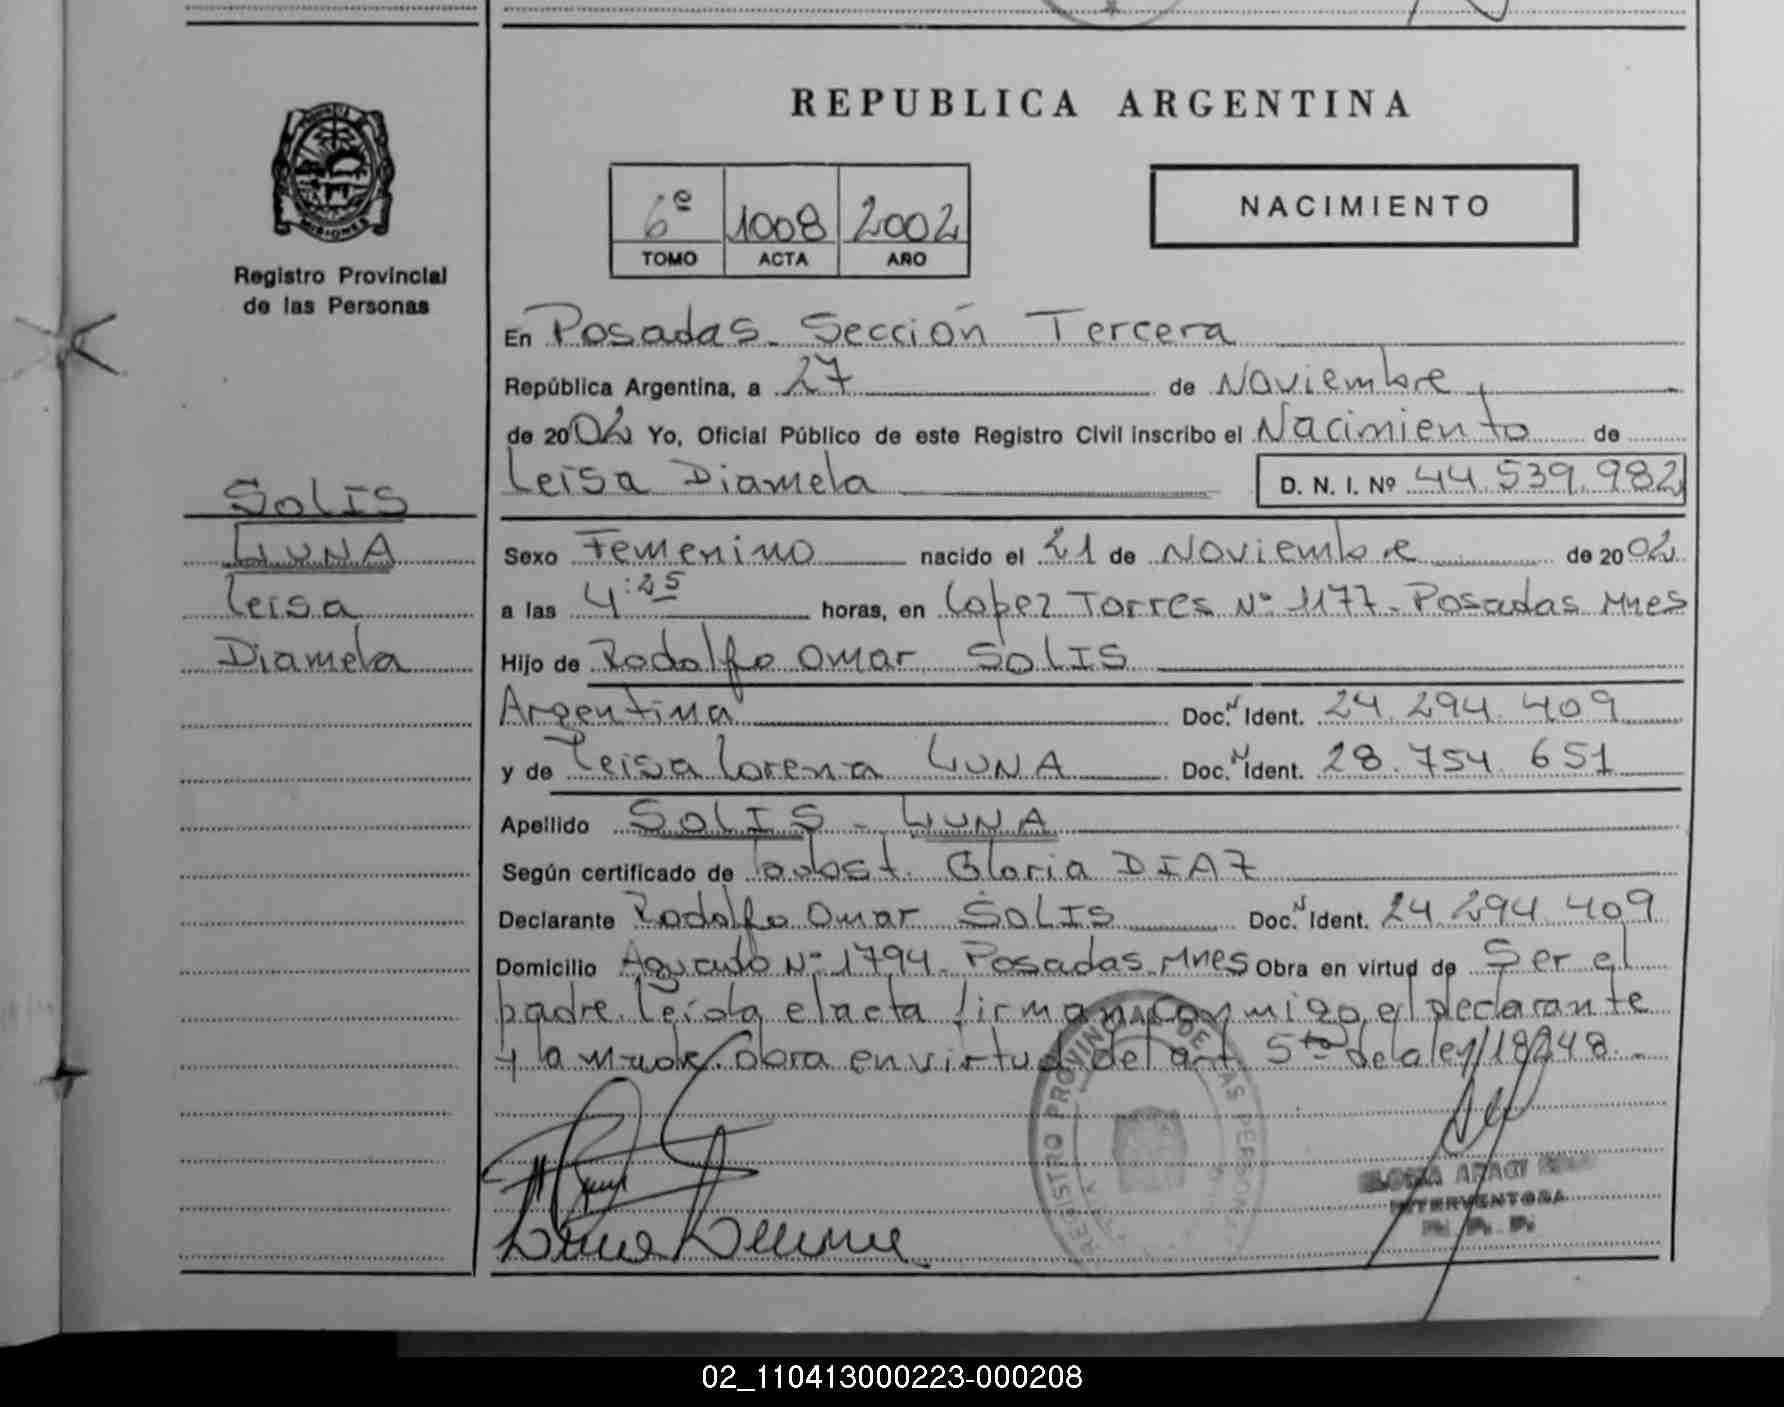 REPUBLICA ARGENTINA
MISIONES
Registro Provincial
de las Personas
6º 1008 2002
TOMO ACTA AÑO
NACIMIENTO
En Posadas. Sección Tercera
República Argentina, a 27 de Noviembre
de 2002 Yo, Oficial Público de este Registro Civil inscribo el Nacimiento de
Leisa Diamela D. N. I. Nº 44.539.982
SOLIS
LUNA
Leisa
Diamela
Sexo Femenino nacido el 21 de Noviembre de 2002
a las 4:25 horas, en Lopez Torres Nº 1177. Posadas Mnes
Hijo de Rodolfo Omar SOLIS
Argentina Doc. N Ident. 24.294.409
y de Leisa Lorena LUNA Doc. N Ident. 28.754.651
Apellido SOLIS - LUNA
Según certificado de Gloria DIAZ
Declarante Rodolfo Omar SOLIS Doc. N Ident. 24.294.409
Domicilio Aguado Nº 1794. Posadas. Mnes Obra en virtud de Ser el
padre. Leída el acta firman conmigo el declarante
y la madre. obra en virtud del art. 5to de la ley 18248.
REGISTRO PROVINCIAL DE LAS PERSONAS
INTERVENTORA
R. P. P.
02_110413000223-000208